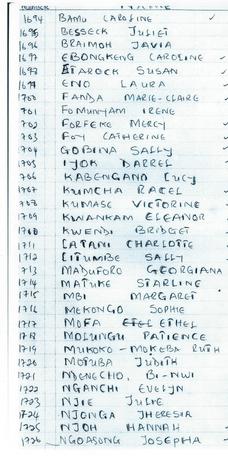 NUMBER NAME
1694 BAMU CAROLINE
1695 BESSECK JULIET
1696 BRAIMOH JAVIA
1697 EBONGKENG CAROLINE
1698 ETAROCK SUSAN
1699 ENO LAURA
1700 FANDA MARIE-CLAIRE
1701 FOMUNYAM IRENE
1702 FORFEKE MERCY
1703 FOY CATHERINE
1704 GOBINA SALLY
1705 IJOK DARREL
1706 KABENGANA LUCY
1707 KUMCHA RACEL
1708 KUMASE VICTORINE
1709 KWANKAM ELEANOR
1710 KWENDI BRIDGET
1711 LATANI CHARLOTTE
1712 LITUMBE SALLY
1713 MADUFORO GEORGIANA
1714 MATUKE STARLINE
1715 MBI MARGARET
1716 MEKONGO SOPHIE
1717 MOFA ETHEL
1718 MOLUNGU PATIENCE
1719 MUKOKO-MOKEBA RUTH
1720 MOTUBA JUDITH
1721 BI-NWI
1722 NGANCHI EVELYN
1723 NJIE JULIE
1724 NJONGA THERESIA
1725 NJOH HANNAH
1726 NGOASONG JOSEPHA